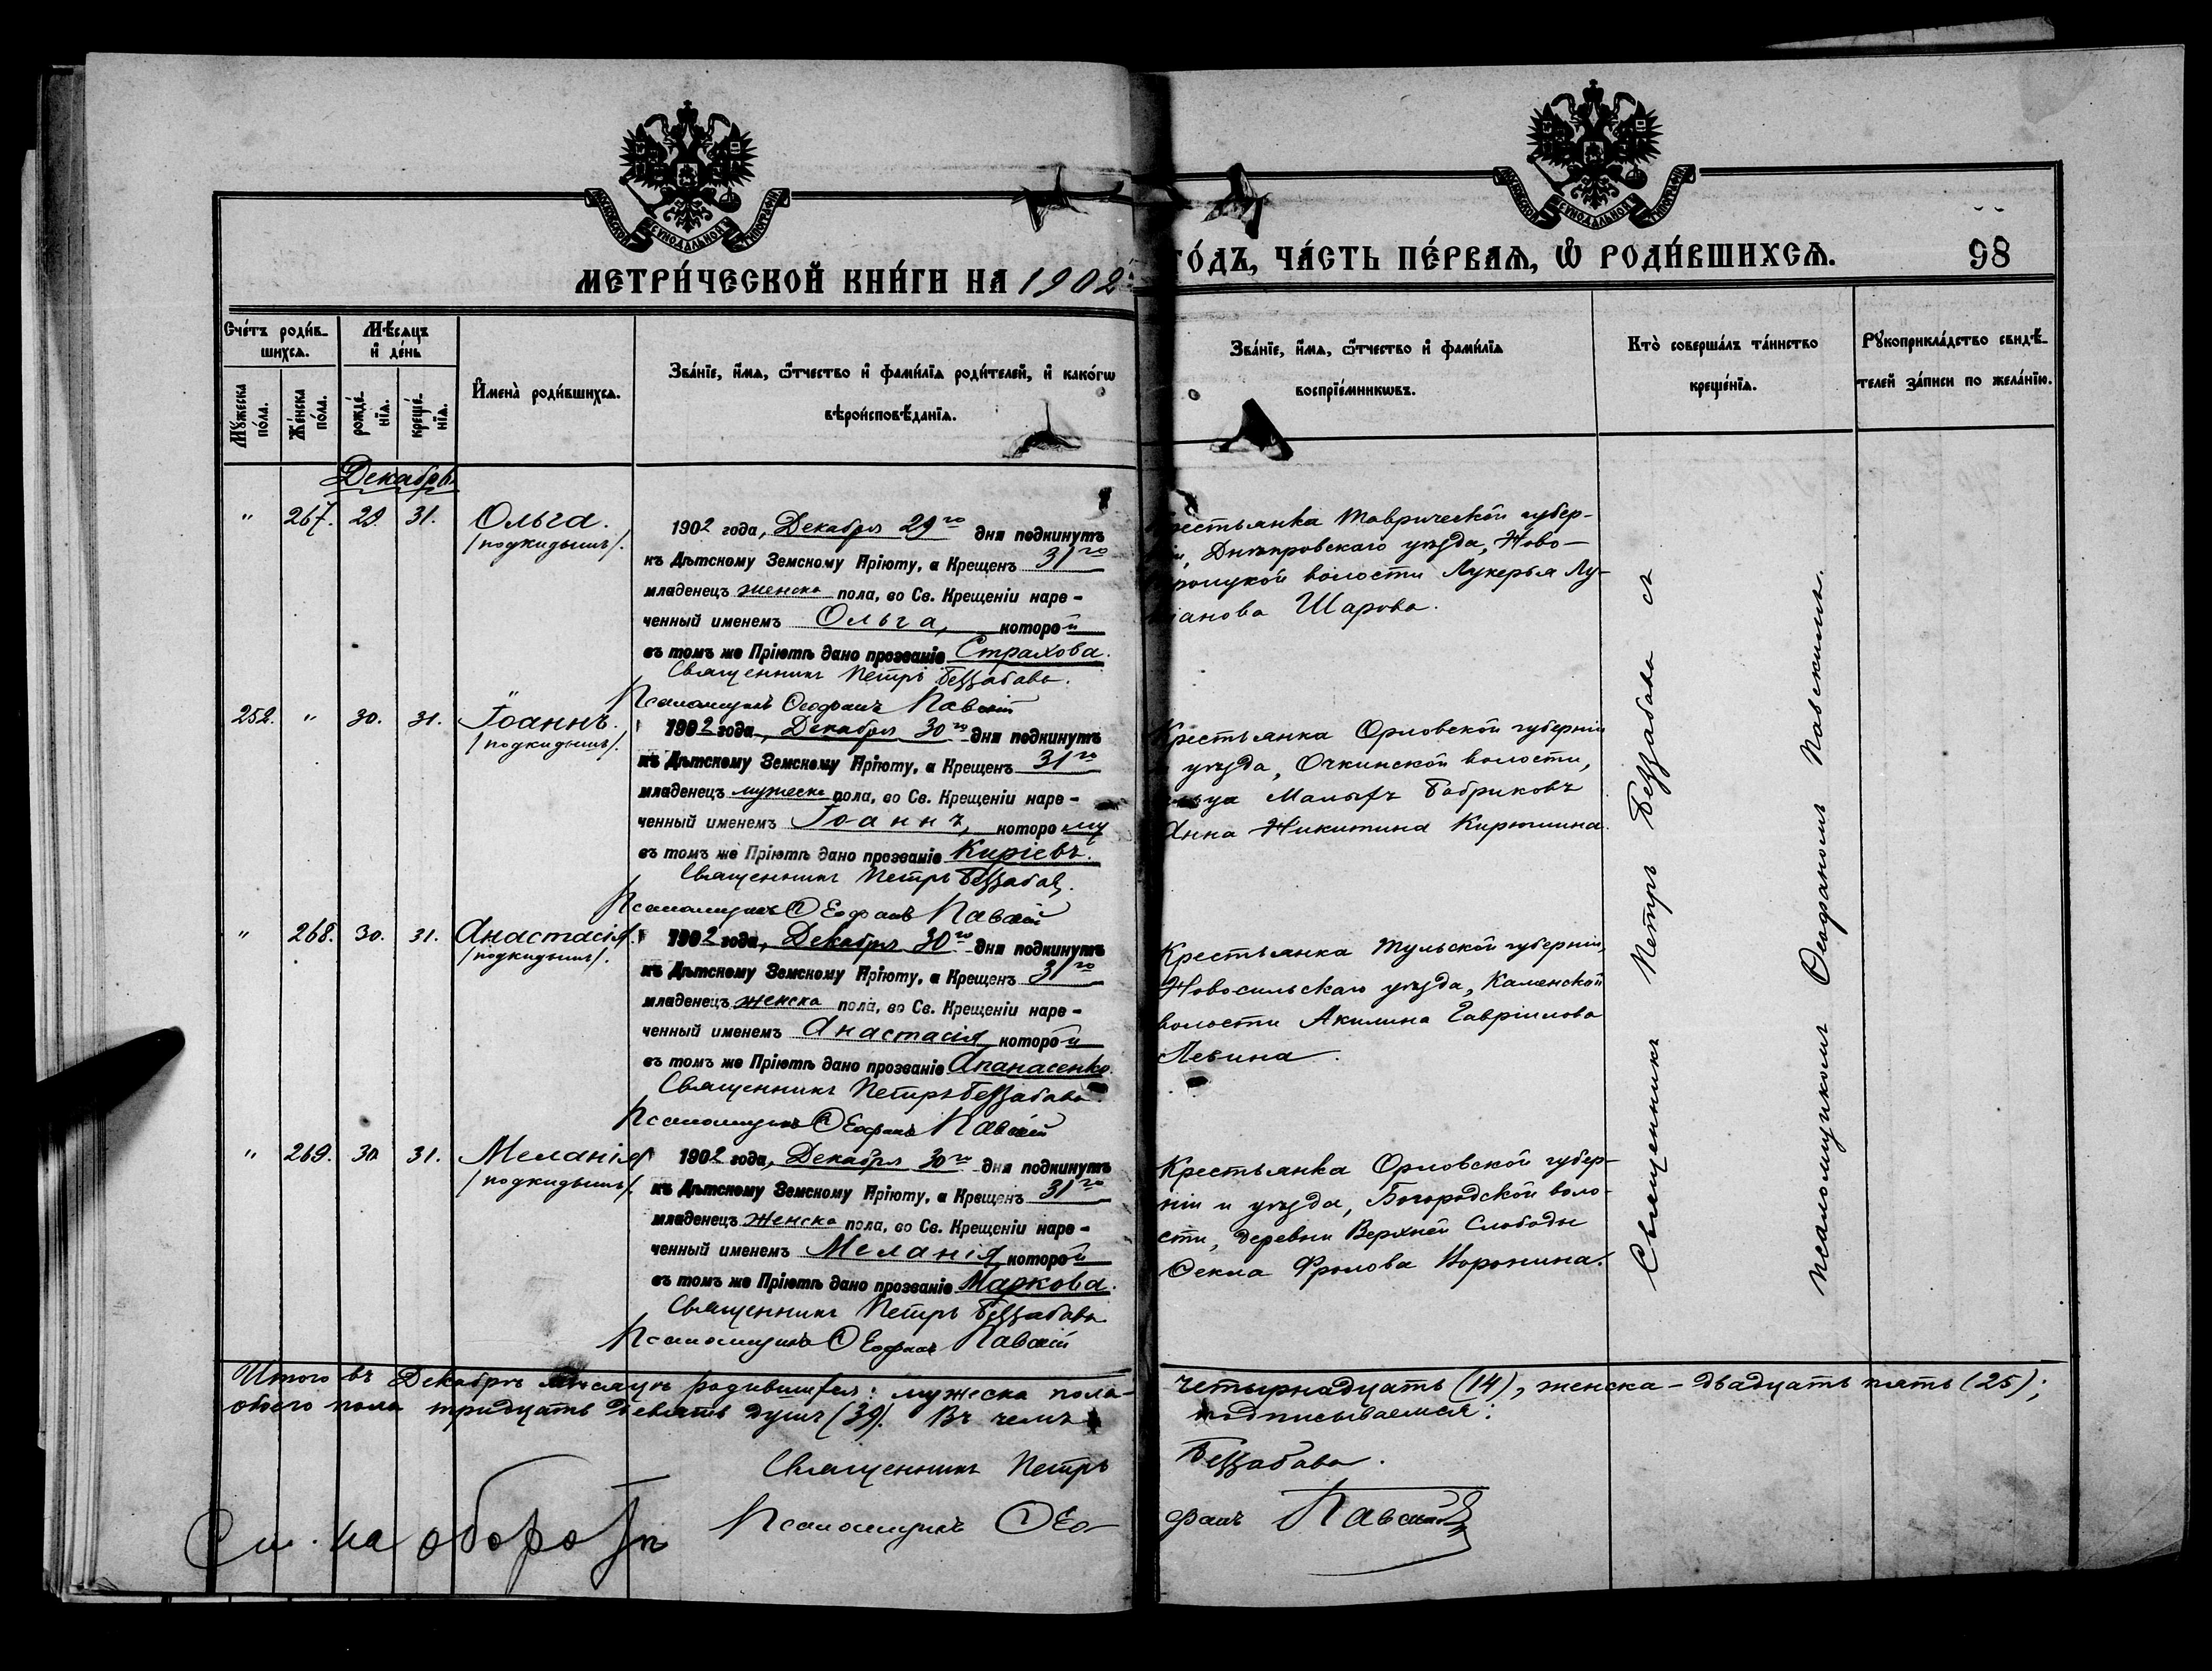 МЕТРИ́ЧЕСКОЙ КНИ́ГИ НА 1902
ГО́ДЪ, ЧА́СТЬ ПЕ́РВАѦ, Ѡ РОДИ́ВШИХСѦ.
98
Сче́тъ роди́в-
шихсѧ.
Мѣ́сѧцъ
и де́нь
Мꙋ́жеска по́ла.
Же́нска по́ла.
рожде́-
нїѧ.
креще́-
нїѧ.
Имена̀ роди́вшихсѧ.
Зва́нїе, и́мѧ, ѻ́тчество и фамі́лїѧ роди́телей, и како́гѡ
вѣроисповѣ́данїѧ.
Зва́нїе, и́мѧ, ѻ́тчество и фамі́лїѧ
воспрїе́мникѡвъ.
Кто̀ соверша́лъ та́инство
креще́нїѧ.
Рꙋкоприкла́дство свидѣ́-
телей за́писи по жела́нїю.
Декабрь
" 267. 29. 31. Ольга.
/подкидышъ/.
1902 года, Декабря 29го дня подкинутъ
къ Дѣтскому Земскому Пріюту, а Крещенъ 31го
младенецъ женска пола, во Св. Крещеніи наре-
ченный именемъ Ольга, которой
въ томъ же Пріютѣ дано прозваніе Страхова.
Священникъ Петръ Беззабава.
Псаломщикъ Ѳеофанъ Павскій
Крестьянка Таврической губер-
Днѣпровскаго уѣзда, Ново-
волости Лукерья Лу-
Шарова.
252. " 30. 31. Іоаннъ.
/подкидышъ/.
1902 года, Декабря 30го дня подкинутъ
къ Дѣтскому Земскому Пріюту, а Крещенъ 31го
младенецъ мужеска пола, во Св. Крещеніи наре-
ченный именемъ Іоаннъ, которому
въ томъ же Пріютѣ дано прозваніе Киріевъ.
Священникъ Петръ Беззабава.
Псаломщикъ Ѳеофанъ Павскій
Крестьянка Орловской губерніи
уѣзда, Очкинской волости,
Малыхъ Бобриковъ
Анна Никитина Кирюшина.
" 268. 30. 31. Анастасія.
/подкидышъ/.
1902 года, Декабря 30го дня подкинутъ
къ Дѣтскому Земскому Пріюту, а Крещенъ 31го
младенецъ женска пола, во Св. Крещеніи наре-
ченный именемъ Анастасія которой
въ томъ же Пріютѣ дано прозваніе Апанасенко.
Священникъ Петръ Беззабава.
Псаломщикъ Ѳеофанъ Павскій
Крестьянка Тульской губерніи,
Новосильскаго уѣзда, Каменской
волости Акилина Гавріилова
Левина.
" 269. 30. 31. Меланія
/подкидышъ/.
1902 года, Декабря 30го дня подкинутъ
къ Дѣтскому Земскому Пріюту, а Крещенъ 31го
младенецъ женска пола, во Св. Крещеніи наре-
ченный именемъ Меланія которой
въ томъ же Пріютѣ дано прозваніе Маркова.
Священникъ Петръ Беззабава
Псаломщикъ Ѳеофанъ Павскій
Крестьянка Орловской губер-
ніи и уѣзда, Богородской воло-
сти, деревни Верхней Слободы
Ѳекла Фролова Воронина.
Священникъ Петръ Беззабава съ
псаломщикомъ Ѳеофаномъ Павскимъ.
Итого въ Декабрѣ мѣсяцѣ родившихся: мужеска пола-
четырнадцать (14), женска - двадцать пять (25);
обоего пола тридцать девять душъ (39). Въ чемъ
подписываемся:
Священникъ Петръ
Беззабава.
Псаломщикъ Ѳео-
фанъ Павскій
См. на оборотѣ